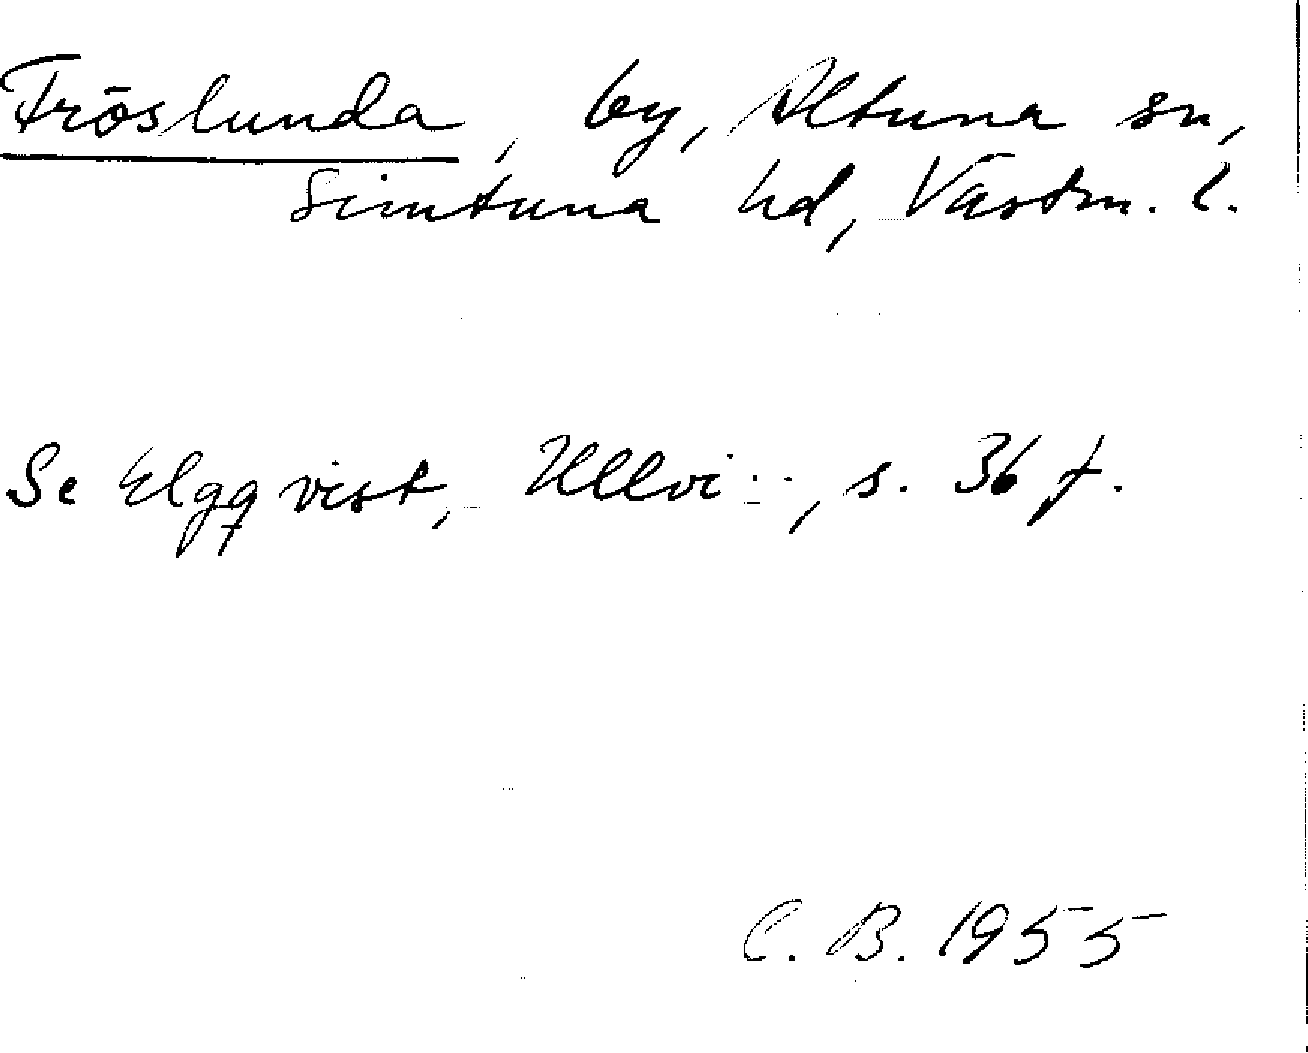 Fröslunda, by, Altuna sn,
Simtuna hd, Västm. l.
Se Elgqvist, Ullvi..., s. 36 f.
C. B. 1955